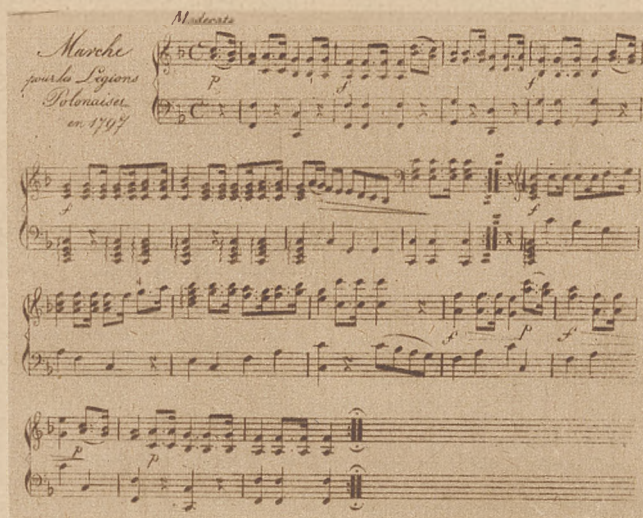 Moderato
Marche
pour les Légions
Polonaises
en 1797
p
f
f
f
f
f
p
f
p
p